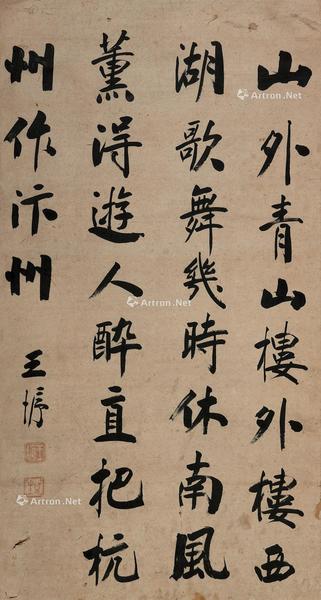 山外青山樓外樓西
湖歌舞幾時休南風
薰得遊人醉直把杭
州作汴州
王
Artron.Net
Artron.Net
Artron.Net
Artron.Net